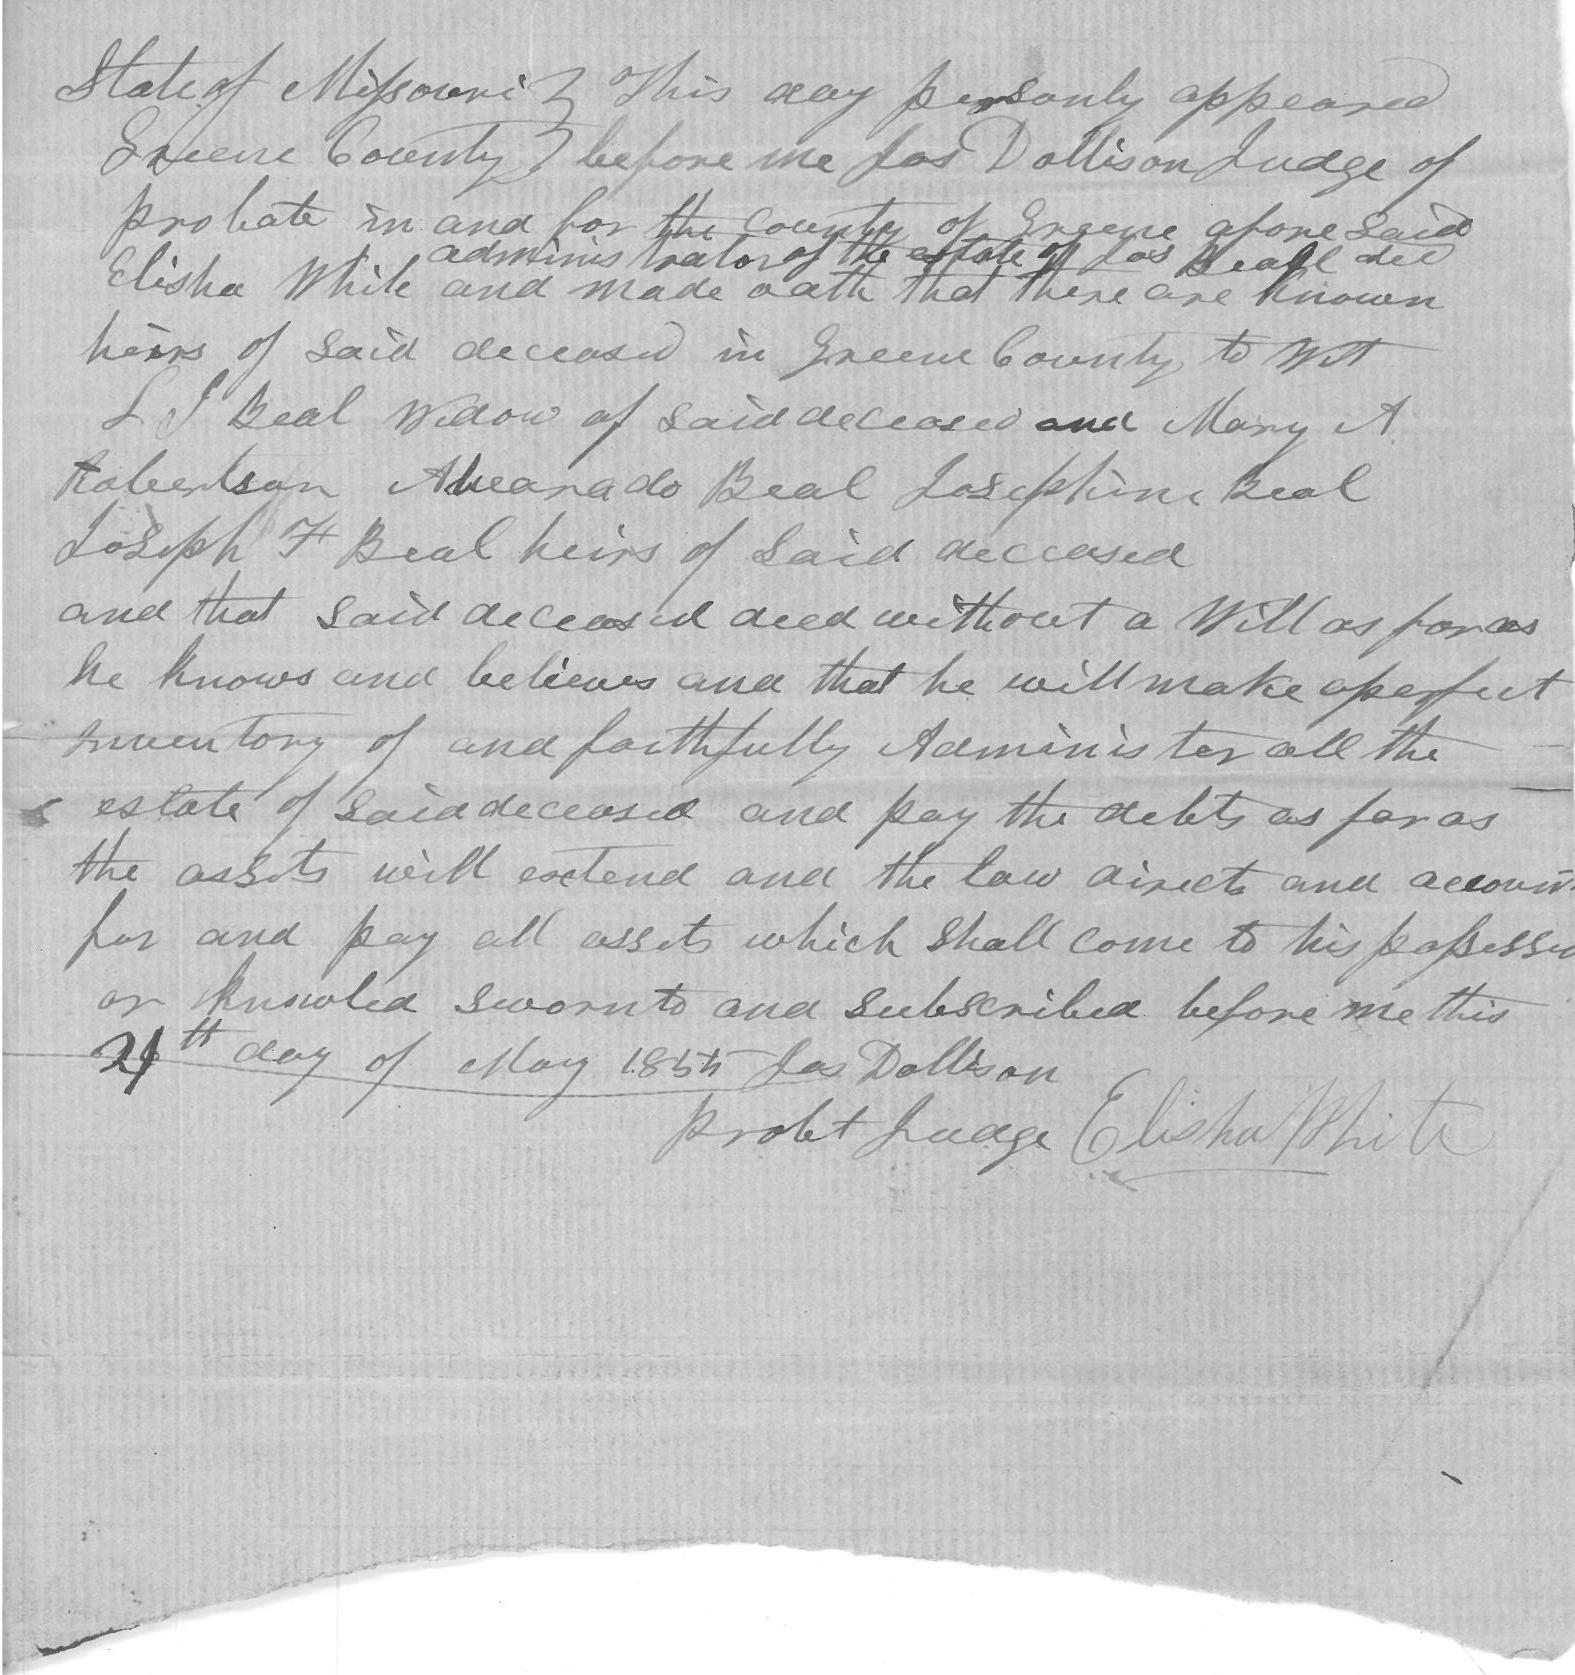 State of Missouri } This day personly appeared
Greene County } before me Jas Dollison Judge of
probate in and for the County of Greene afore said
administrator of the estate of Jas Beal decd
Elisha White and made oath that there are known
heirs of said deceased in Greene County to Wit
L J Beal Widow of said deceased and Mary A
Robertson Alvarado Beal Josephine Beal
Joseph H Beal heirs of said deceased
and that said deceased died without a Will as far as
he knows and believes and that he will make a perfect
inventory of and faithfully Administer all the
estate of said deceased and pay the debts as far as
the assets will extend and the law directs and account
for and pay all assets which shall come to his possessio
or knowled sworn to and subscribed before me this
21th day of May 1855 Jas Dollison
Probt Judge Elisha White